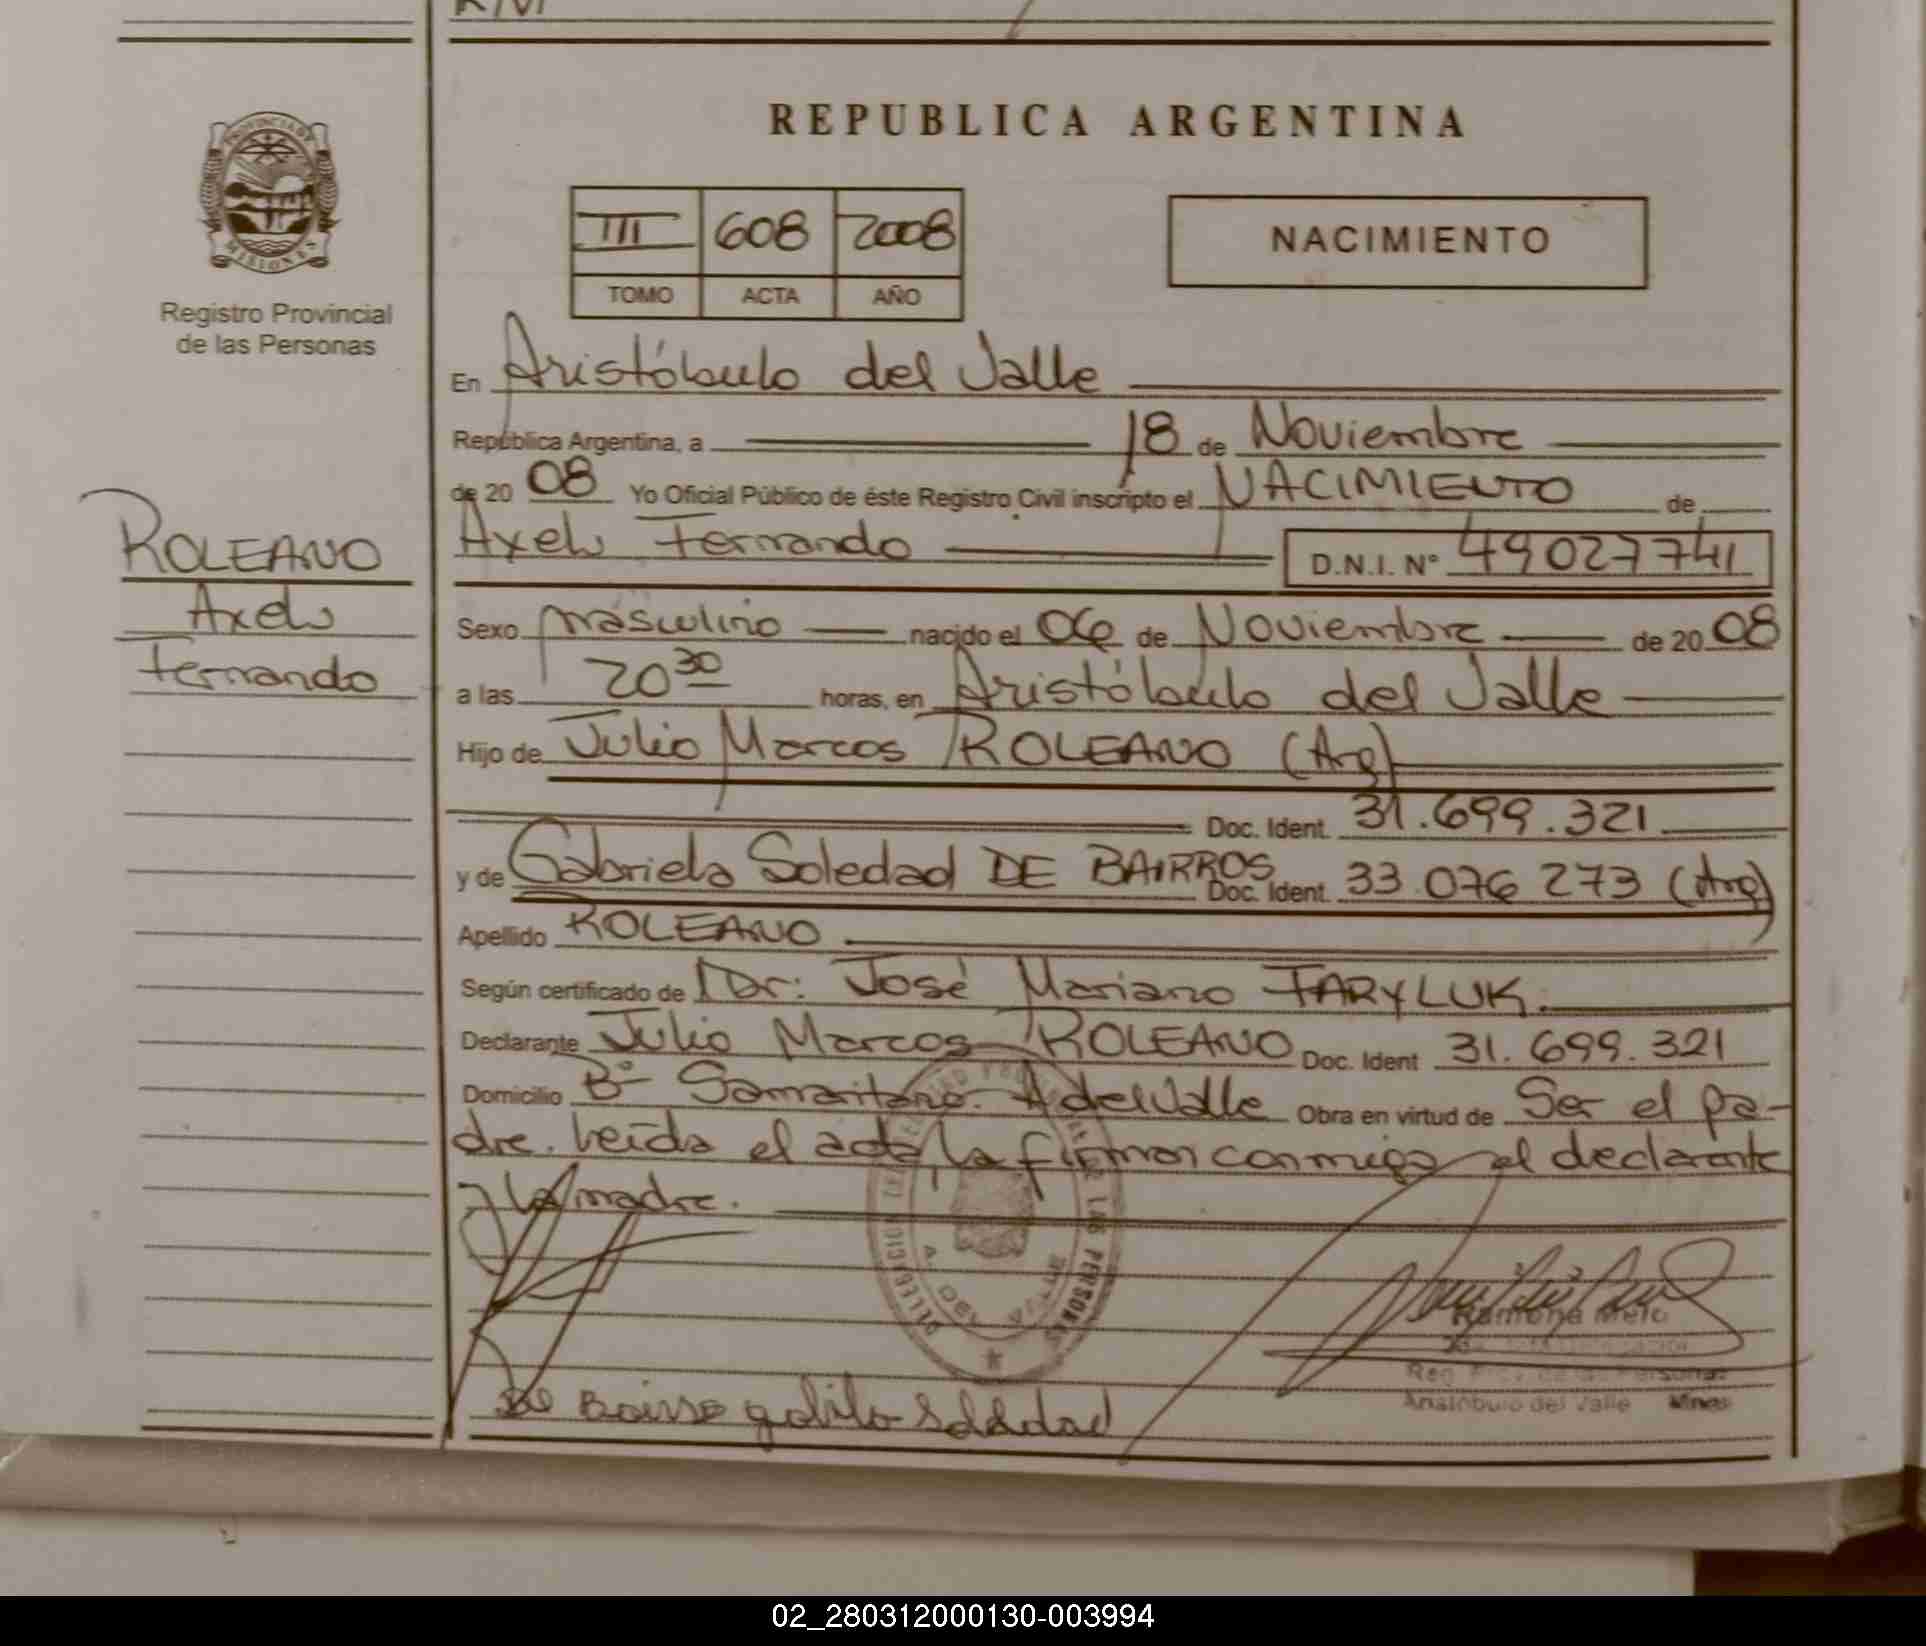 REPUBLICA ARGENTINA
PROVINCIA DE
MISIONES
Registro Provincial
de las Personas
III 608 2008
TOMO ACTA AÑO
NACIMIENTO
En Aristóbulo del Valle
República Argentina, a 18 de Noviembre
de 20 08 Yo Oficial Público de éste Registro Civil inscripto el NACIMIENTO de
Axel Fernando D.N.I. N° 49027741
ROLEANO
Axel
Fernando
Sexo masculino nacido el 06 de Noviembre de 20 08
a las 20 30 horas, en Aristóbulo del Valle
Hijo de Julio Marcos ROLEANO (Arg)
Doc. Ident. 31.699.321
y de Gabriela Soledad DE BAIRROS Doc. Ident. 33.076 273 (Arg)
Apellido ROLEANO
Según certificado de Dr: José Mariano TARYLUK.
Declarante Julio Marcos ROLEANO Doc. Ident 31.699.321
Domicilio B° Samaritano. A del Valle Obra en virtud de Ser el pa-
dre. Leída el acta, la firman conmigo el declarante
y la madre.
DELEGACION LAS PERSONAS
Ramona Melo
Reg. Prov. de las Personas
Aristóbulo del Valle Mnes
Soledad
02_280312000130-003994